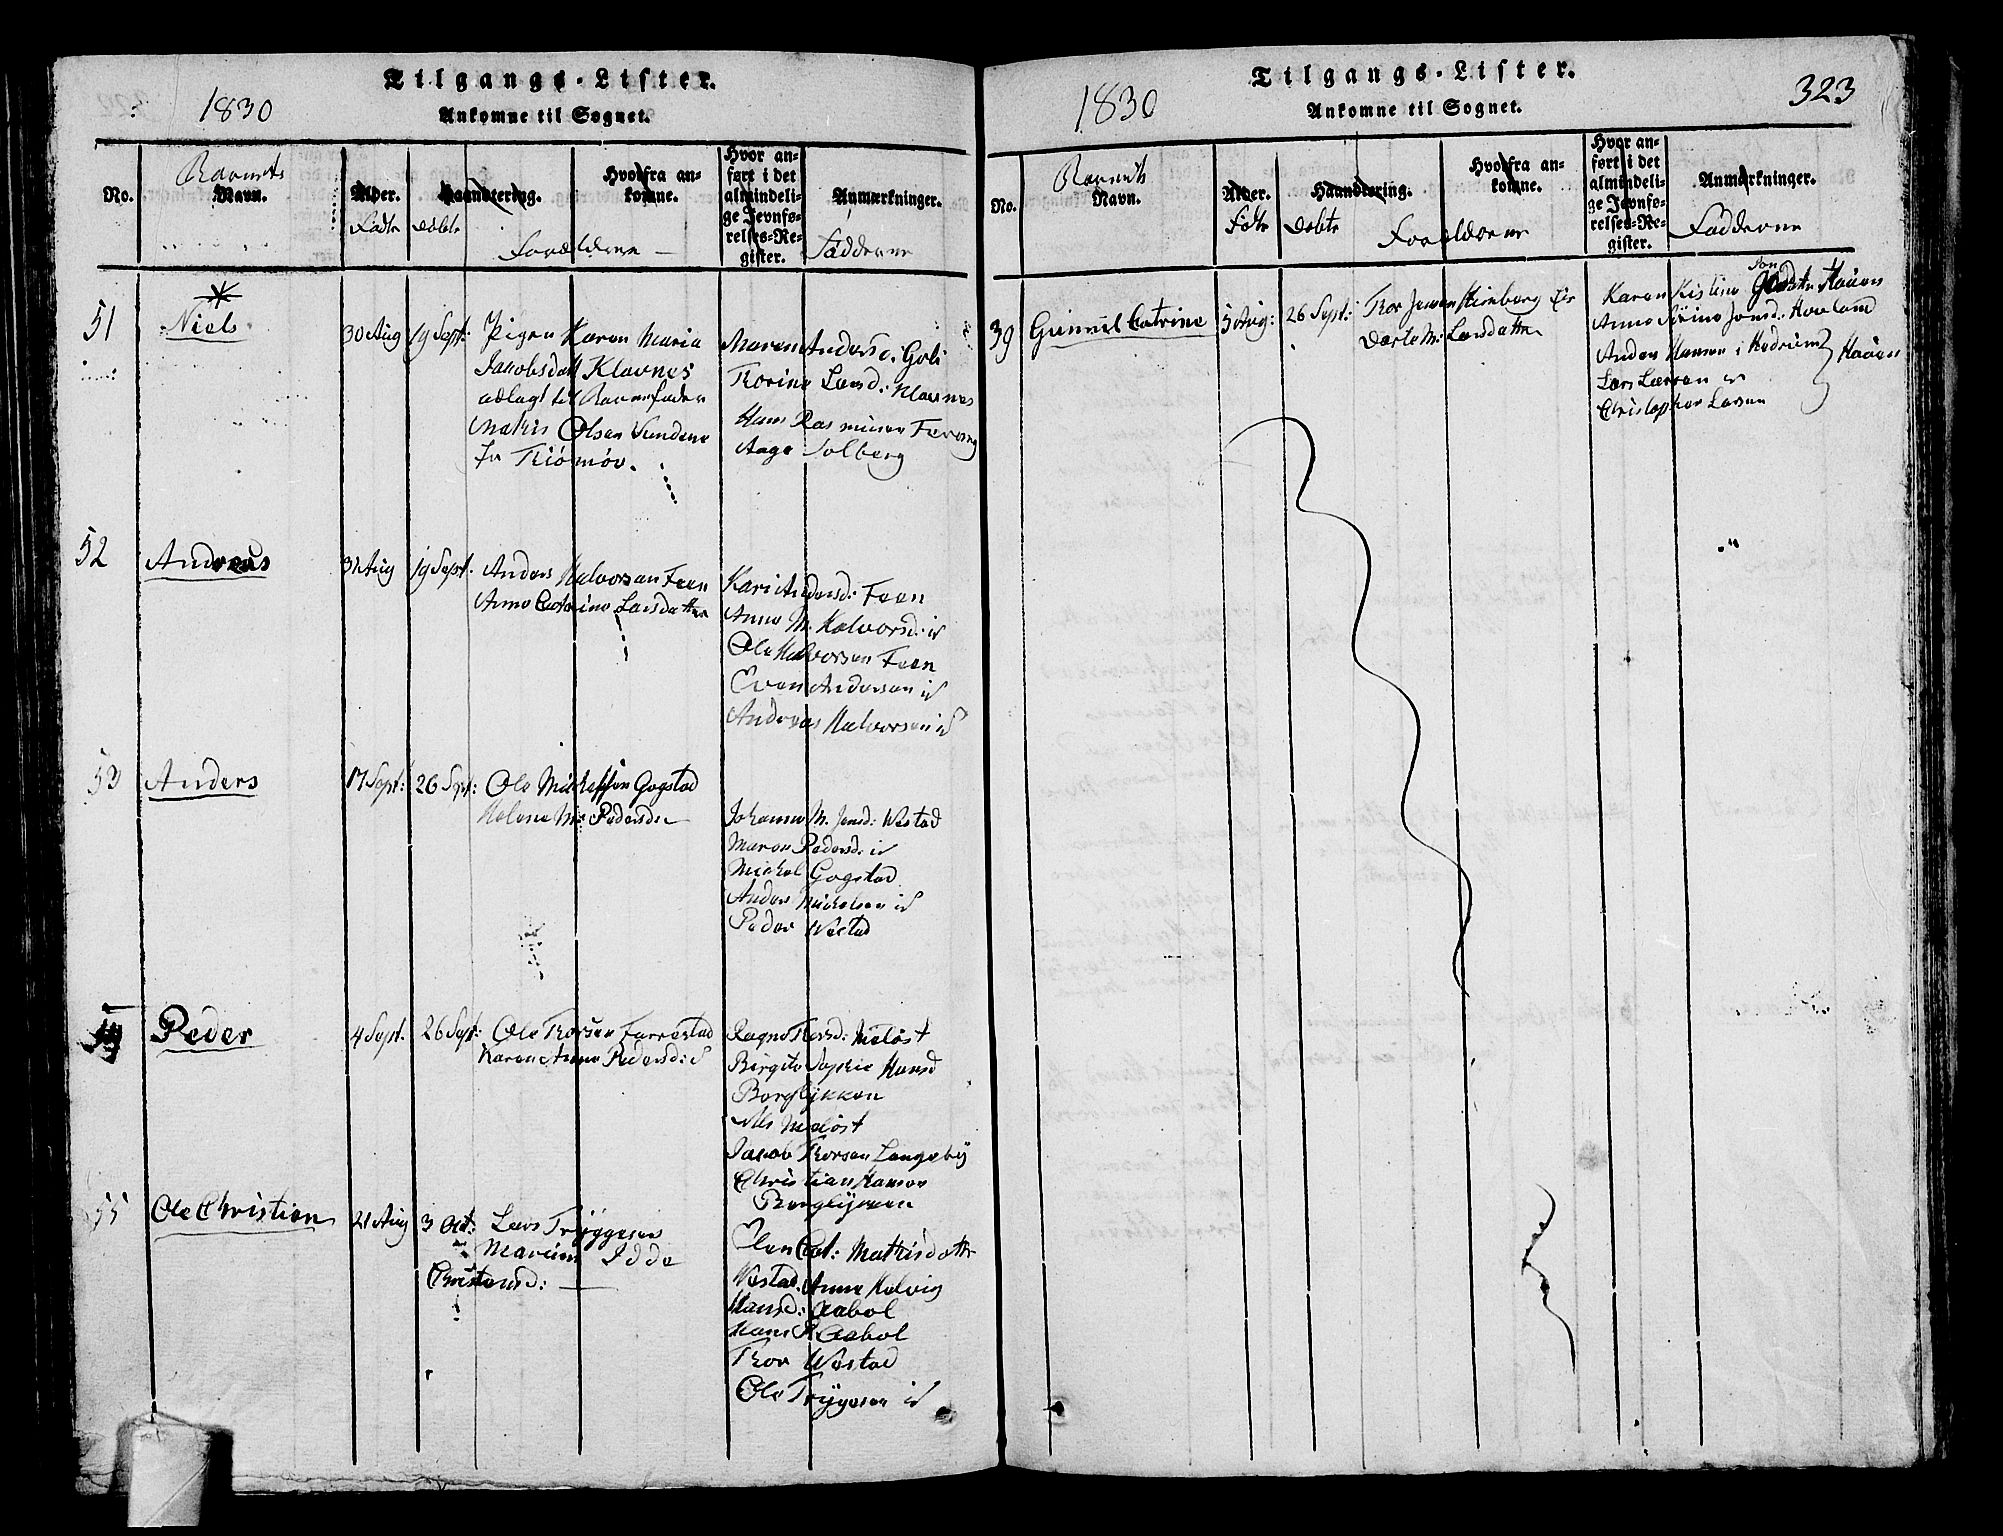 Tilgangs-Lister.
1830
Ankomne til Sognet.
No.
Barnets
Navn.
Alder.
Födte
Haandtering.
Döbte
Hvorfra an-
komne.
Forældrene
Hvor an-
ført i det
almindeli-
ge Jevnfø-
relses-Re-
gister.
Anmærkninger.
Fadderne
51
Niels
30 Aug
19 Sept:
Pigen Karen Maria
Jacobsdatt Klavnes
udlagt til Barnefader
Mathis Olsen Sundene
fr Tiømøe.
Maren Andersd: Goli
Torine Larsd: Klavnes
Hans Rasmusen Feen
Aage Solberg
52
Andreas
31 Aug
19 Sept.
Anders Halvorsen Feen
Anne Catrine Larsdatter
Kari Andersd: Feen
Anne M. Halvorsd: id
Ole Halvorsen Feen
Even Andersen id
Andreas Halvorsen id
53
Anders
17 Sept:
26 Sept:
Ole Mickelsen Gogstad
Helene M. Pedersd:
Johanne M. Jensd: Westad
Maren Pedersd: id
Mickel Gogstad
Anders Mickelsen id
Peder Westad
Peder
4 Sept.
26 Sept:
Ole Thorsen Furrestad
Karen Anne Pedersd: id
Ragne Thorsd: Meløst
Birgite Sophie Hansd
Bergslykken
Nils Meløst
Jacob Thorsen Langeby
Christian Hansen
Bergslykken
55
Ole Christian
21 Aug
3 Oct:
Lars Tryggesen
Maren Idde
Christensd:
Elen Cat: Mathisdatter
Westad. Anne Helvig
Hansd: Aabol
Hans R. Aabol
Thor Westad
Ole Tryggesen id
Tilgangs-Lister.
323
1830
Ankomne til Sognet.
No.
Barnets
Navn.
Alder.
Födte
Haandtering.
Döbte
Hvorfra an-
komne.
Forældrene
Hvor an-
ført i det
almindeli-
ge Jevnfø-
relses-Re-
gister.
Anmærkninger.
Fadderne
39
Gunnil Catrine
5 Aug:
26 Sept:
Thor Jensen
Dorte M: Larsdatter
Karen Kistine Haåen
Anne Sirine Jensd: Hovland
Anders Hansen i Hedrum
Haåen
Lars Larsen id
Christopher Larsen